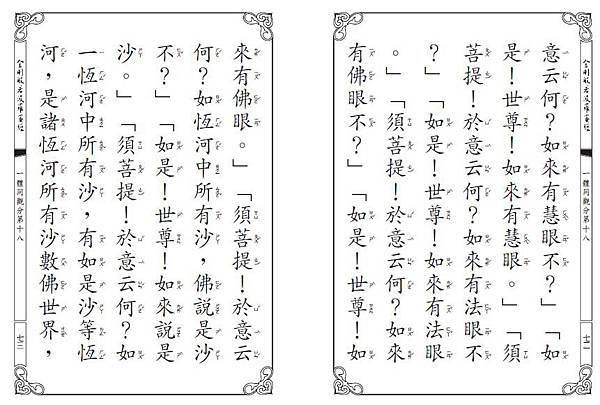 金剛般若波羅蜜經
一體同觀分第十八
七一
意云何？如來有慧眼不？」「如
是！世尊！如來有慧眼。」「須
菩提！於意云何？如來有法眼不
？」「如是！世尊！如來有法眼
。」「須菩提！於意云何？如來
有佛眼不？」「如是！世尊！如
來有佛眼。」「須菩提！於意云
何？如恆河中所有沙，佛說是沙
不？」「如是！世尊！如來說是
沙。」「須菩提！於意云何？如
一恆河中所有沙，有如是沙等恆
河，是諸恆河所有沙數佛世界，
金剛般若波羅蜜經
一體同觀分第十八
七二